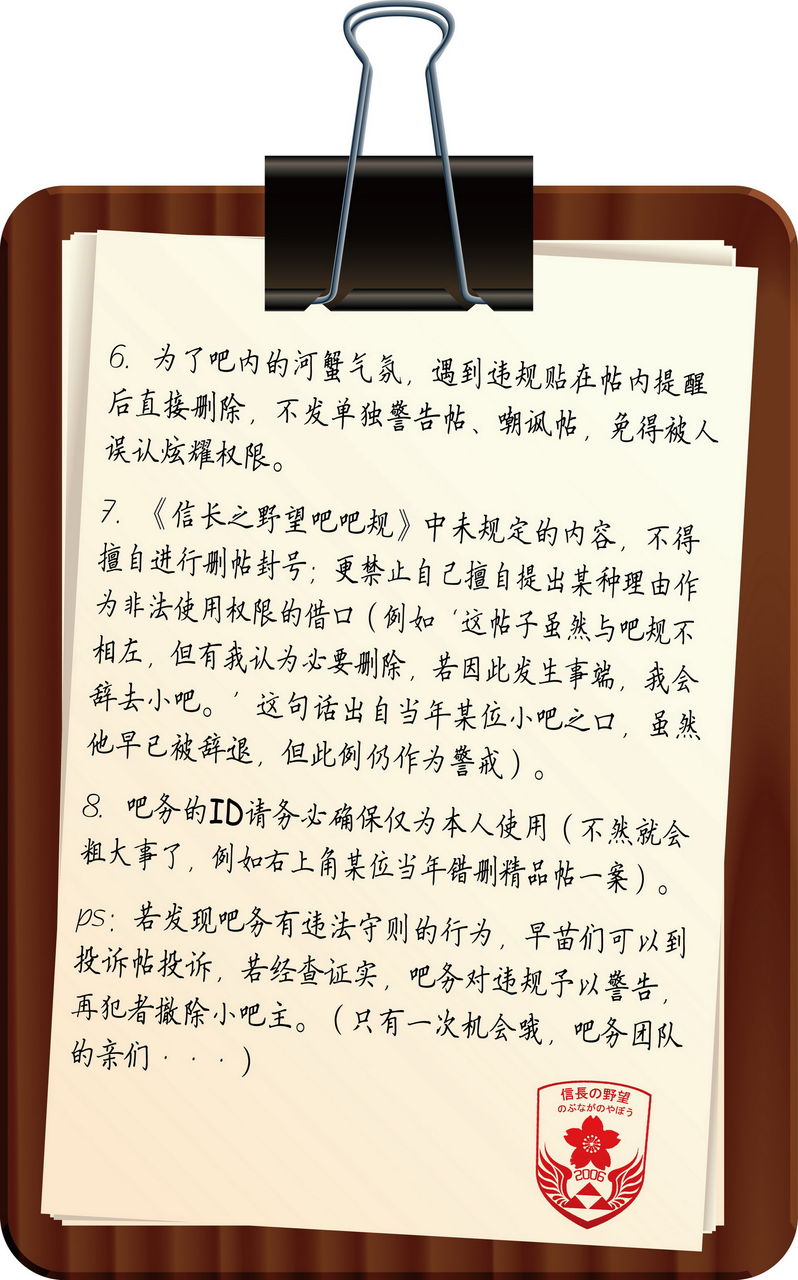 6. 为了吧内的河蟹气氛，遇到违规贴在帖内提醒
后直接删除，不发单独警告帖、嘲讽帖，免得被人
误认炫耀权限。
7. 《信长之野望吧吧规》中未规定的内容，不得
擅自进行删帖封号；更禁止自己擅自提出某种理由作
为非法使用权限的借口（例如‘这帖子虽然与吧规不
相左，但有我认为必要删除，若因此发生事端，我会
辞去小吧。’这句话出自当年某位小吧之口，虽然
他早已被辞退，但此例仍作为警戒）。
8. 吧务的ID请务必确保仅为本人使用（不然就会
粗大事了，例如右上角某位当年错删精品帖一案）。
ps：若发现吧务有违法守则的行为，早苗们可以到
投诉帖投诉，若经查证实，吧务对违规予以警告，
再犯者撤除小吧主。（只有一次机会哦，吧务团队
的亲们···）
信長の野望
のぶながのやぼう
2006